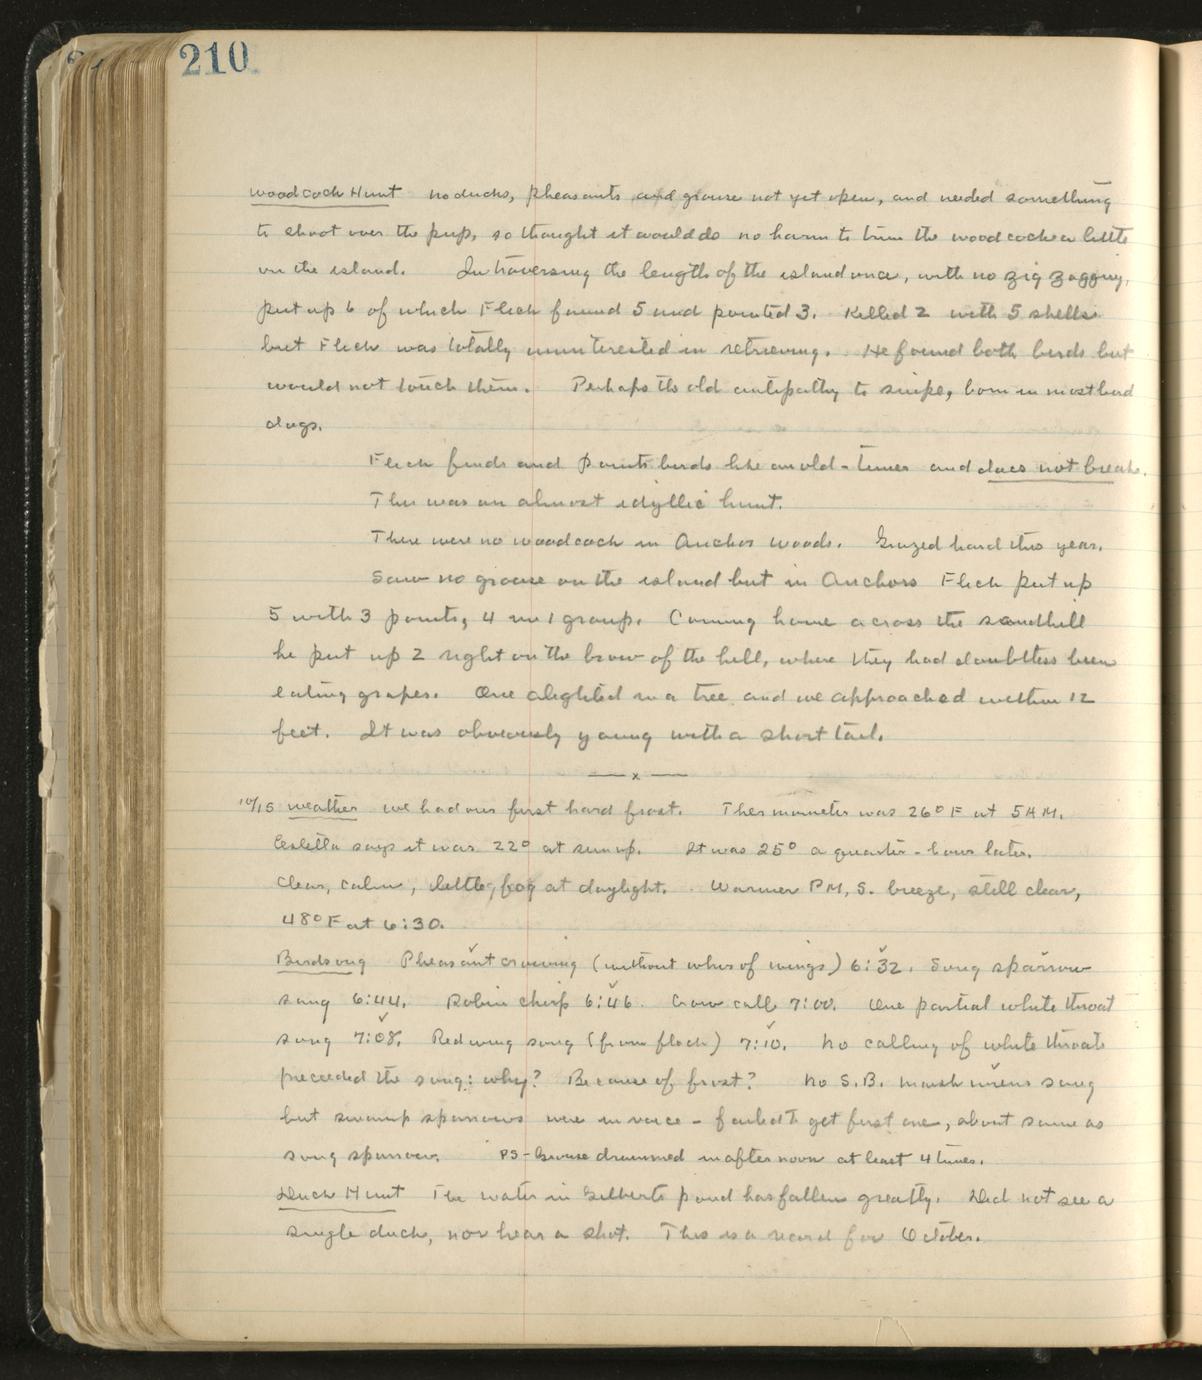 210
Woodcock Hunt No ducks, pheasants and grouse not yet open, and needed something
to shoot over the pup, so thought it would do no harm to trim the woodcock a little
on the island. In traversing the length of the island once, with no zig zagging,
put up 6 of which Flick found 5 and pointed 3. Killed 2 with 5 shells
but Flick was totally uninterested in retrieving. He found both birds but
would not touch them. Perhaps the old antipathy to snipe, born in most bird
dogs.
Flick finds and points birds like an old-timer and does not break.
This was an almost idyllic hunt.
There were no woodcock in Anchor woods. Grazed hard this year.
Saw no grouse on the island but in Anchors Flick put up
5 with 3 points, 4 in 1 group. Coming home across the sandhill
he put up 2 right on the brow of the hill, where they had doubtless been
eating grapes. One alighted in a tree and we approached within 12
feet. It was obviously young with a short tail.
— x —
10/15 Weather We had our first hard frost. Thermometer was 26° F at 5 AM.
Estella says it was 22° at sunup. It was 25° a quarter-hour later.
Clear, calm, little fog at daylight. Warmer PM, S. breeze, still clear,
48° F at 6:30.
Birdsong Pheasant crowing (without whir of wings) 6:32. Song sparrow
song 6:44. Robin chirp 6:46. Crow call 7:00. One partial white throat
song 7:08. Redwing song (from flock) 7:10. No calling of white throats
preceeded the song: why? Because of frost? No S.B. marsh wrens song
but swamp sparrows were in voice - failed to get first one, about same as
song sparrow. PS- Grouse drummed in afternoon at least 4 times.
Duck Hunt The water in Gilberts pond has fallen greatly. Did not see a
single duck, nor hear a shot. This is a record for October.